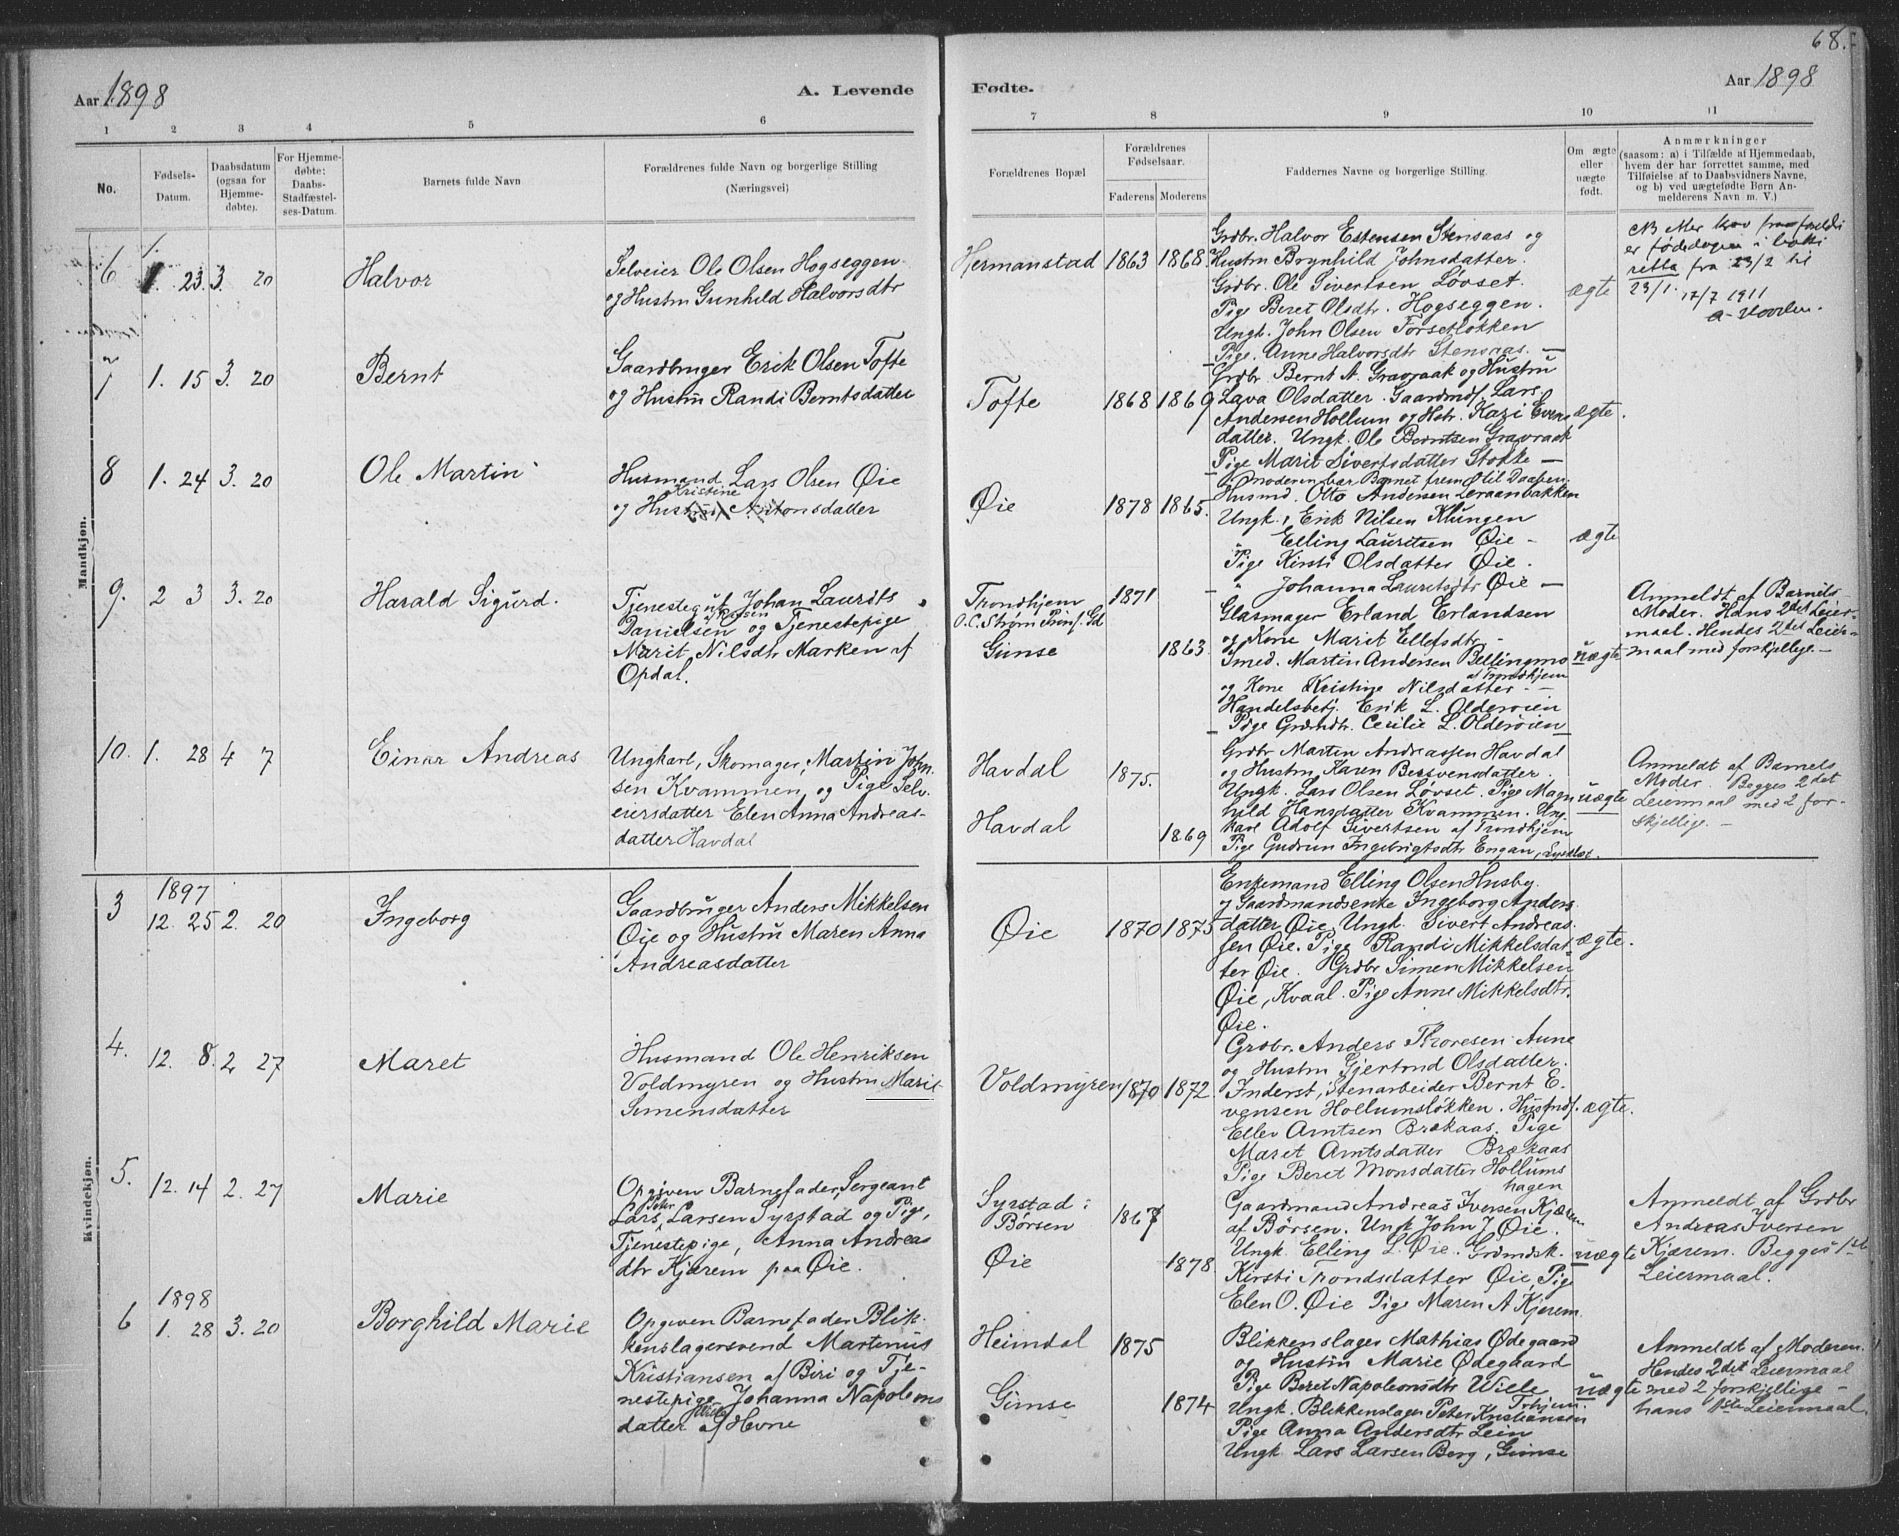 68.
Aar 1898
A. Levende
Fødte.
Aar 1898
1 2 3 4 5 6 7 8 9 10 11
No.
Fødsels-
Datum.
Daabsdatum
(ogsaa for
Hjemme-
døbte).
For Hjemme-
døbte:
Daabs-
Stadfæstel-
ses-Datum.
Barnets fulde Navn
Forældrenes fulde Navn og borgerlige Stilling
(Næringsvei)
Forældrenes Bopæl
Forældrenes
Fødselsaar.
Faderens Moderens
Faddernes Navne og borgerlige Stilling.
Om ægte
eller
uægte
født.
Anmærkninger
(saasom: a) i Tilfælde af Hjemmedaab,
hvem der har forrettet samme, med
Tilføielse af to Daabsvidners Navne,
og b) ved uægtefødte Børn An-
melderens Navn m. V.)
Mandkjøn.
6 1. 23 3. 20
Halvor
Selveier Ole Olsen Hogseggen
og Hustru Gunhild Halvorsdtr
Hermanstad 1863 1868
Grdbr. Halvor Estensen Stensaas og
Hustru Brynhild Johnsdatter.
Grdbr. Ole Sivertsen Løvset.
Pige Beret Olsdtr. Hogseggen.
Ungk. John Olsen Forsetløkken
Pige. Anne Halvorsdtr Stensaas. —
ægte
er fødedagen i
retta fra 23/2 til
23/1. 17/7 1911
7 1. 15 3. 20
Bernt
Gaardbruger Erik Olsen Tofte
og Hustru Randi Berntsdatter
Tofte 1868 1869
Grdbr. Bernt A. Gravraak og Hustru
Lava Olsdatter. Gaardmds. Lars
Andersen Hollum og Hstr. Kari Evens
datter. Ungk. Ole Berntsen Gravraak
Pige Marit Sivertsdatter Stokke —
ægte.
8 1. 24 3. 20
Ole Martin
Husmand Lars Olsen Øie
og Hustru Kristine Antonsdatter
Øie 1878 1865.
Moderen bar Barnet frem til Daaben.
Husmd. Otto Andersen Leraanbakken
Ungk. Erik Nilsen Klungen
" Elling Lauritsen Øie -
Pige Kirsti Olsdatter Øie.
" Johanna Lauritsdtr Øie —
ægte
9. 2 3 3. 20
Harald Sigurd.
Tjenestegut Johan Laurits
Danielsen og Tjenestepige
Marit Nilsdtr Marken af
Opdal.
Trondhjem 1871
Gimse 1863
Glasmager Erland Erlandsen
og Kone Marit Ellefsdtr -
Smed. Martin Andersen Bellingmo
af Trondhjem
og Kone Kristine Nilsdatter - —
Handelsbetj. Erik L. Olderøien
Pige Grdmdtr. Cecilie L. Olderøien
uægte
Anmeldt af Barnets
Moder. Hans 2det Leier-
maal. Hendes 2det Leier-
maal med forskjellige. —
10. 1. 28 4 7
Einar Andreas
Ungkarl, Skomager, Martin John
sen Kvammen, og Pige Selv-
eiersdatter Elen Anna Andreas-
datter Havdal
Havdal 1875.
Havdal 1869
Grdbr Martin Andreassen Havdal
og Hustru Karen Bersvensdatter.
Ungk. Lars Olsen Løvset. Pige Magn
hild Hansdatter Kvammen. Ung
karl Adolf Sivertsen af Trondhjem
Pige Gudrun Ingebrigtsdtr Engan,
uægte
Anmeldt af Barnets
Moder. Begges 2det
Leiermaal med 2 for-
skjellige. —
Kvindekjøn.
1897
3 12. 25 2. 20
Ingeborg
Gaardbruger Anders Mikkelsen
Øie og Hustru Maren Anna
Andreasdatter
Øie 1870 1875
Enkemand Elling Olsen Husby
og Gaardmandsenke Ingeborg Anders
datter Øie, Ungk. Sivert Andreas
sen Øie. Pige Randi Mikkelsdat
ter Øie. Grdbr Simen Mikkelsen
Øie, Kvaal. Pige Anne Mikkelsdtr.
Øie.
ægte.
4. 12. 8. 2 27
Maret
Husmand Ole Henriksen
Voldmyren og Hustru Marit
Simensdatter
Voldmyren 1870 1872.
Grdbr. Anders Thoresen Aune
og Hustru Gjertrud Olsdatter.
Inderst, Stenarbeider Bernt E-
vensen Hollumsløkken. Husmds.
Ellev Arntsen Brekaas. Pige
Maret Arntsdatter Brekaas
Pige Beret Monsdatter Hollums
hagen
ægte.
5. 12. 14 2. 27
Marie
Opgiven Barnefader, Sergeant
Lars Peter Larsen Syrstad og Pige,
Tjenestepige, Anna Andreas
dtr Kjærem paa Øie.
Syrstad i
Børsen 1867
Øie 1878
Gaardmand Andreas Iversen Kjærem
af Børsen. Ungk John J. Øie.
Ungk. Elling L. Øie. Grdmdsk.
Kirsti Trondsdatter Øie Pige
Elen O. Øie Pige Maren A Kjerem
uægte
Anmeldt af Grdbr
Andreas Iversen
Kjærem. Begges 1ste
Leiermaal.
1898
6 1. 28 3. 20
Borghild Marie
Opgiven Barnefader Blik-
kenslagersvend Martinus
Kristiansen af Biri og Tje-
nestepige Johanna Napoleons
datter Wille af Hevne
Heimdal 1875
Gimse 1874
Blikkenslager Mathias Ødegaard
og Hustru Marie Ødegaard
Pige Beret Napoleonsdtr Wille
Trhjem.
Ungk. Blikkenslager Peter Kristiansen
Pige Anna Andersdtr Lein
Ungk Lars Larsen Berg, Gimse
uægte
Anmeldt af Moderen.
Hendes 2det Leiermaal
med 2 forskjellige -
hans 1ste Leiermaal.